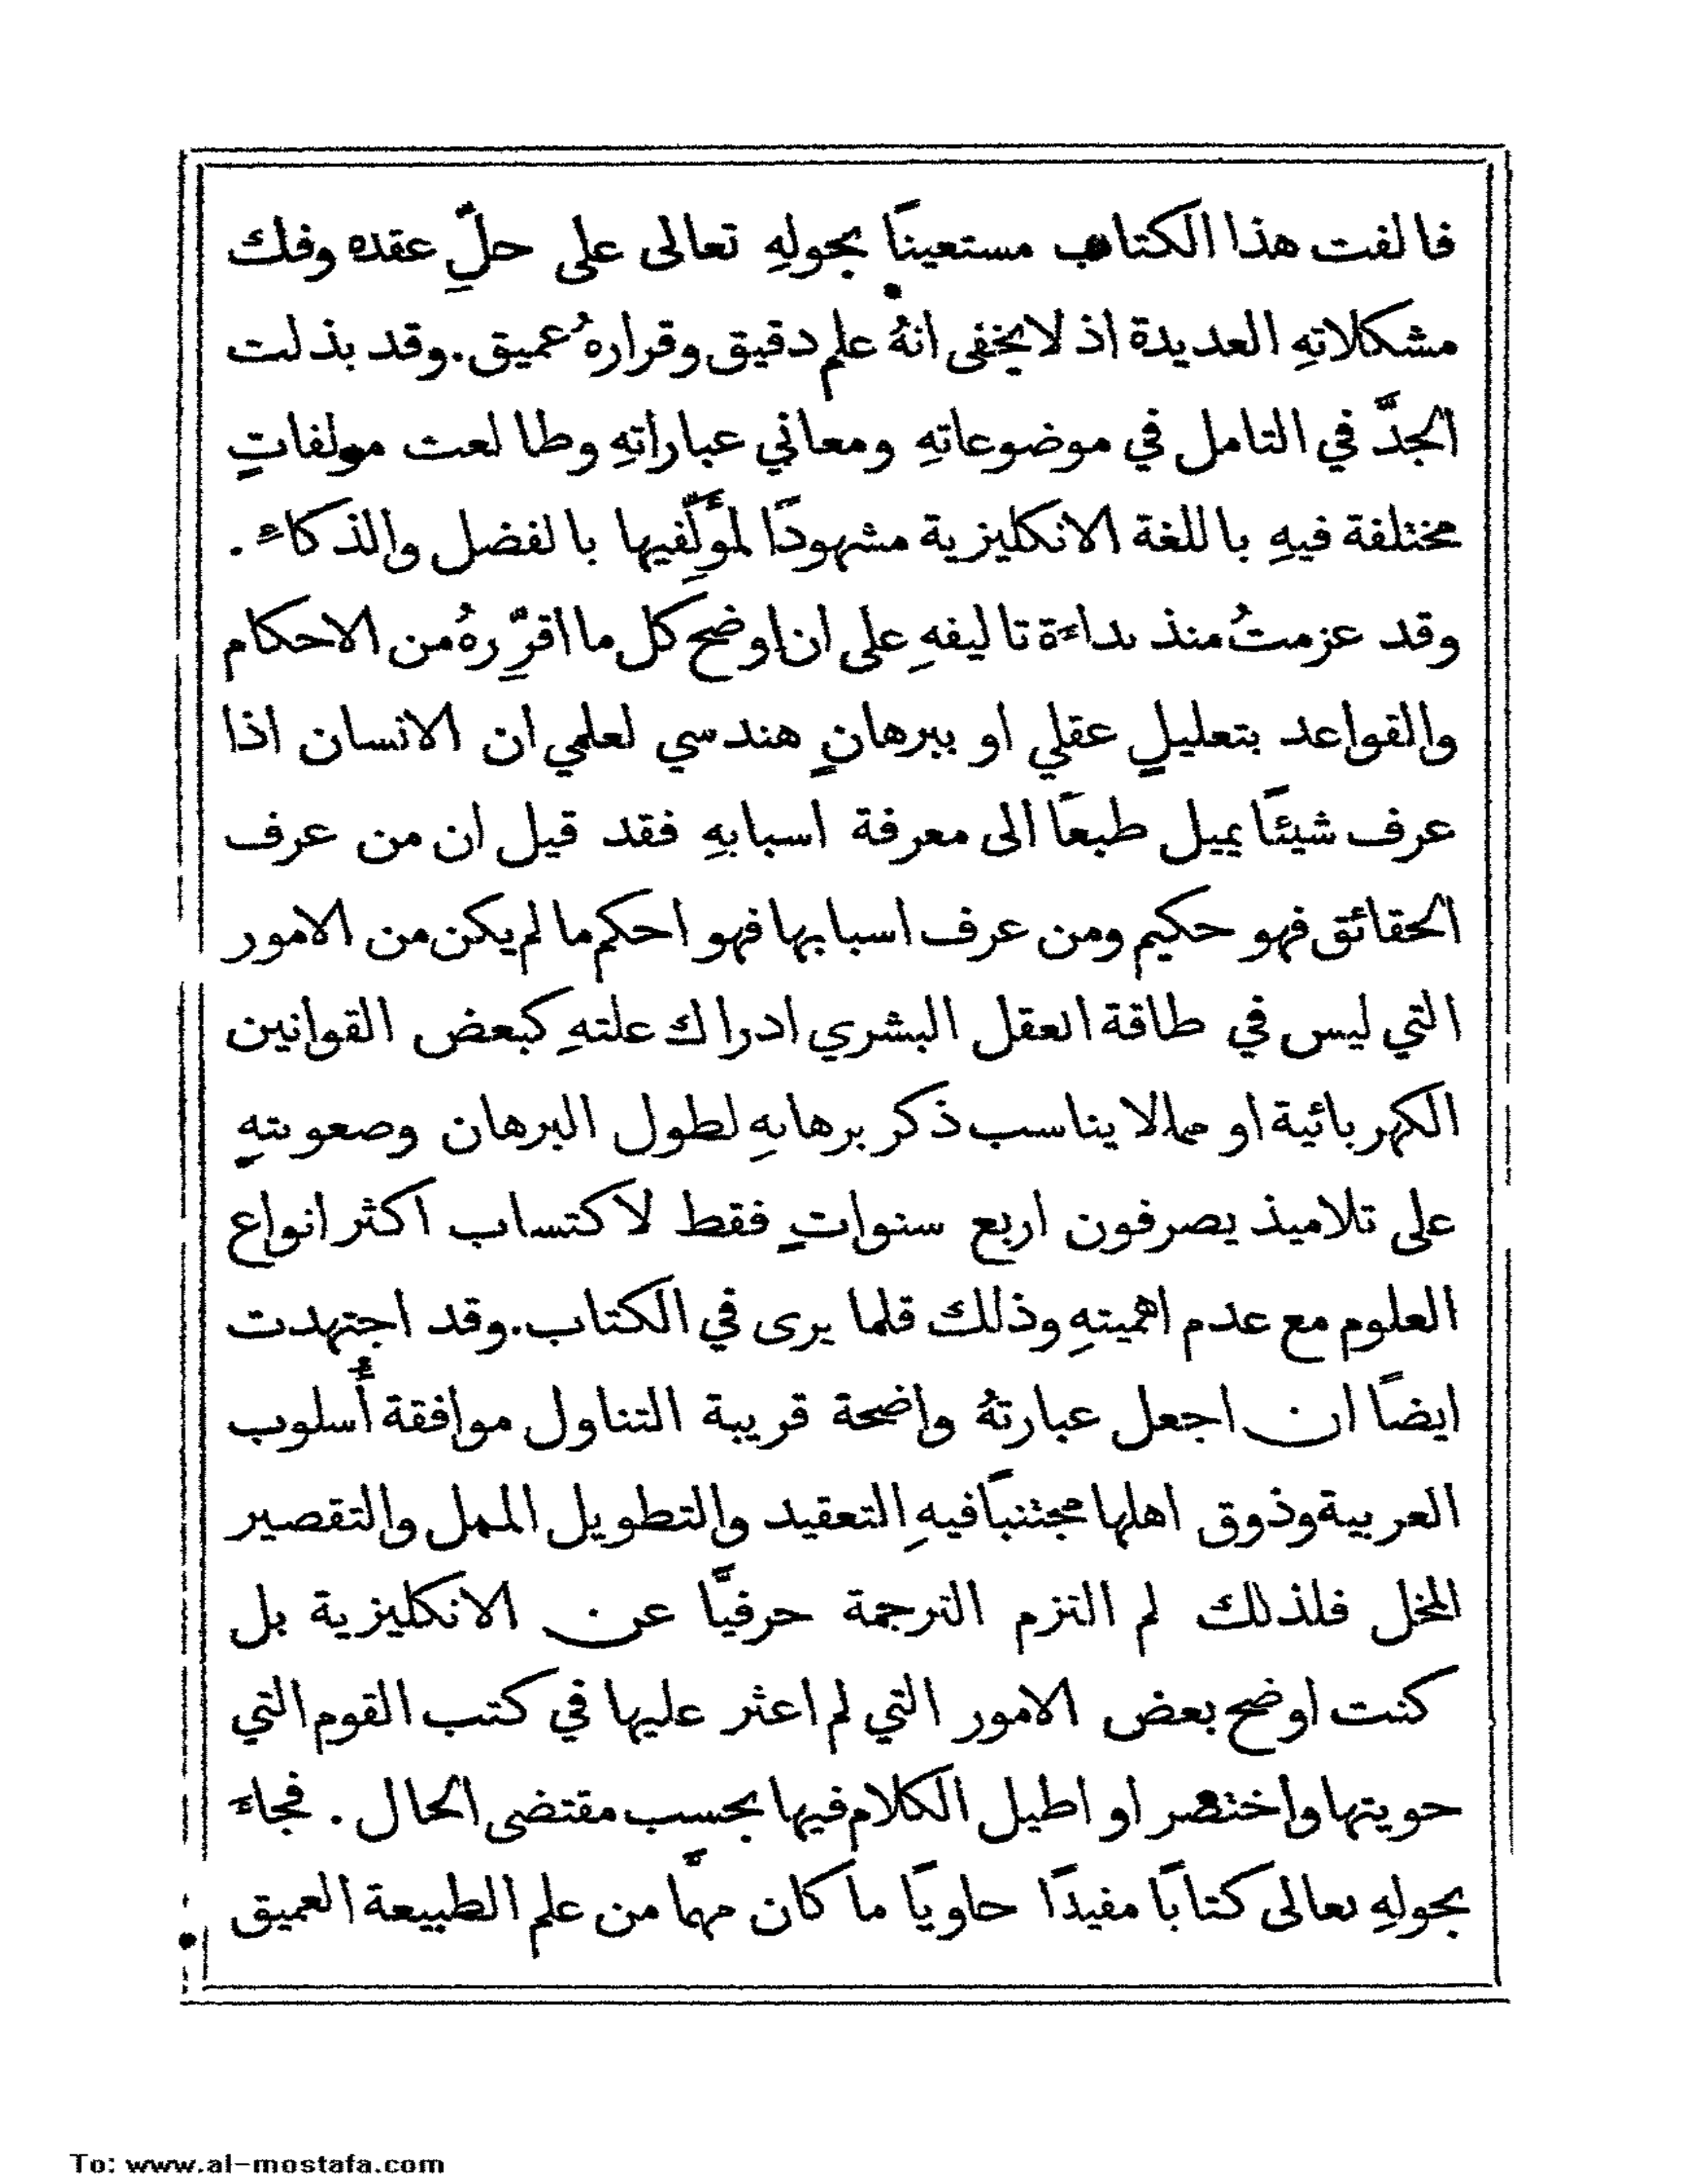 فالفت هذا الكتاب مستعينًا بحولهِ تعالى على حلِّ عقده وفك
مشكلاتهِ العديدة اذ لا يخفى انهُ علم دقيق وقرارهُ عميق. وقد بذلت
الجدَّ في التامل في موضوعاتهِ ومعاني عباراتهِ وطالعت مولفاتٍ
مختلفة فيهِ باللغة الانكليزية مشهودًا لمؤَلِّفيها بالفضل والذكاء .
وقد عزمتُ منذ بداءة تاليفهِ على ان اوضح كل ما اقرِّرهُ من الاحكام
والقواعد بتعليلٍ عقلي او ببرهانٍ هندسي لعلمي ان الانسان اذا
عرف شيئًا يميل طبعًا الى معرفة اسبابهِ فقد قيل ان من عرف
الحقائق فهو حكيم ومن عرف اسبابها فهو احكم ما لم يكن من الامور
التي ليس في طاقة العقل البشري ادراك علتهِ كبعض القوانين
الكهربائية او مما لا يناسب ذكر برهانهِ لطول البرهان وصعوبتهِ
على تلاميذ يصرفون اربع سنواتٍ فقط لاكتساب اكثر انواع
العلوم مع عدم اهميتهِ وذلك قلما يرى في الكتاب. وقد اجتهدت
ايضًا ان اجعل عبارتهُ واضحة قريبة التناول موافقة أُسلوب
العربية وذوق اهلها مجتنبًا فيهِ التعقيد والتطويل الممل والتقصير
المخل فلذلك لم التزم الترجمة حرفيًّا عن الانكليزية بل
كنت اوضح بعض الامور التي لم اعثر عليها في كتب القوم التي
حويتها واختصر او اطيل الكلام فيها بحسب مقتضى الحال . فجاء
بحولهِ تعالى كتابًا مفيدًا حاويًا ما كان مهمًّا من علم الطبيعة العميق
To: www.al-mostafa.com